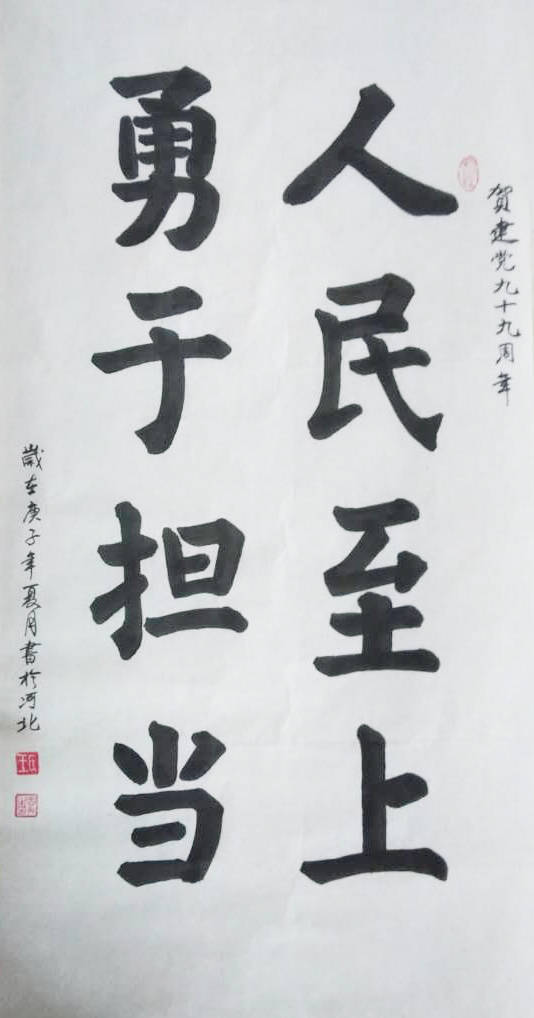 贺建党九十九周年
人民至上
勇于担当
歲在庚子年夏月書於河北